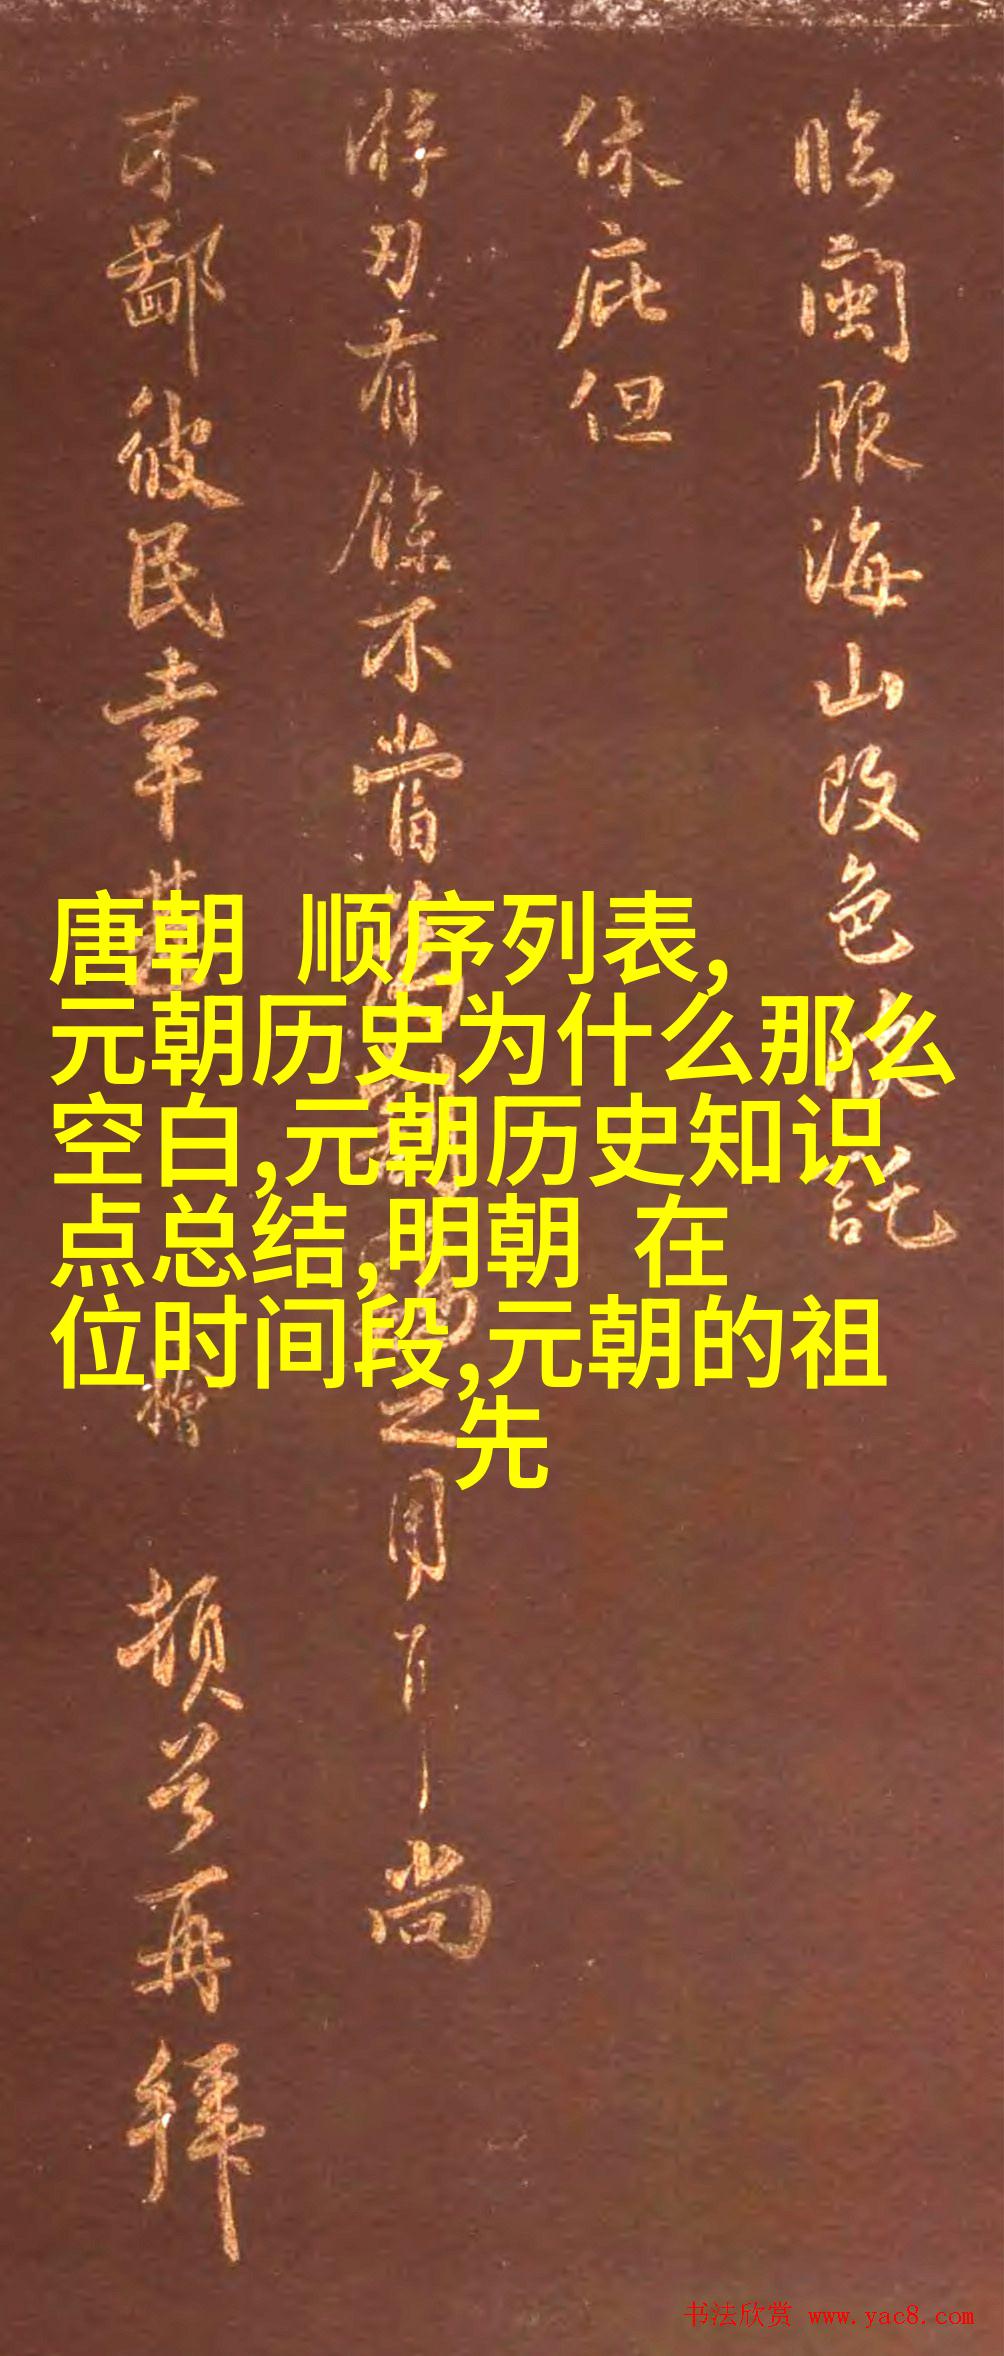 臨闽服海山改色欣託
休庇但
游刃有餘不嘗
之用
尚
不鄙彼民幸甚
檜
頓首再拜
唐朝 顺序列表,
元朝历史为什么那么
空白,元朝历史知识
点总结,明朝 在
位时间段,元朝的祖
先
书法欣赏 www.yac8.com